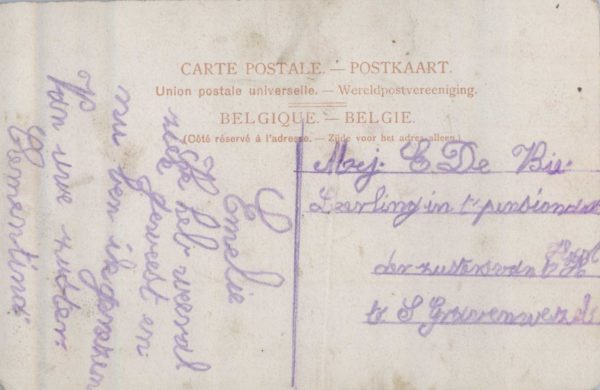 CARTE POSTALE. — POSTKAART.
Union postale universelle. — Wereldpostvereeniging.
BELGIQUE. — BELGIE.
(Côté réservé à l'adresse. — Zijde voor het adres alleen.)
Mej. E De Bie
Leerling in t' pensionat
der zusters van
te S Gravenwezel
Emelie
Ik heb overal
geweest en
nu ben ik
op
van uwe zuster
Clementina